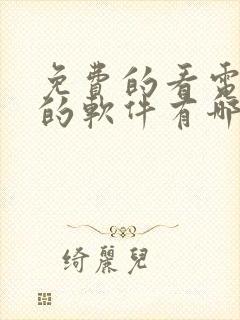 免費的看電
的軟件有哪
绮麗兒